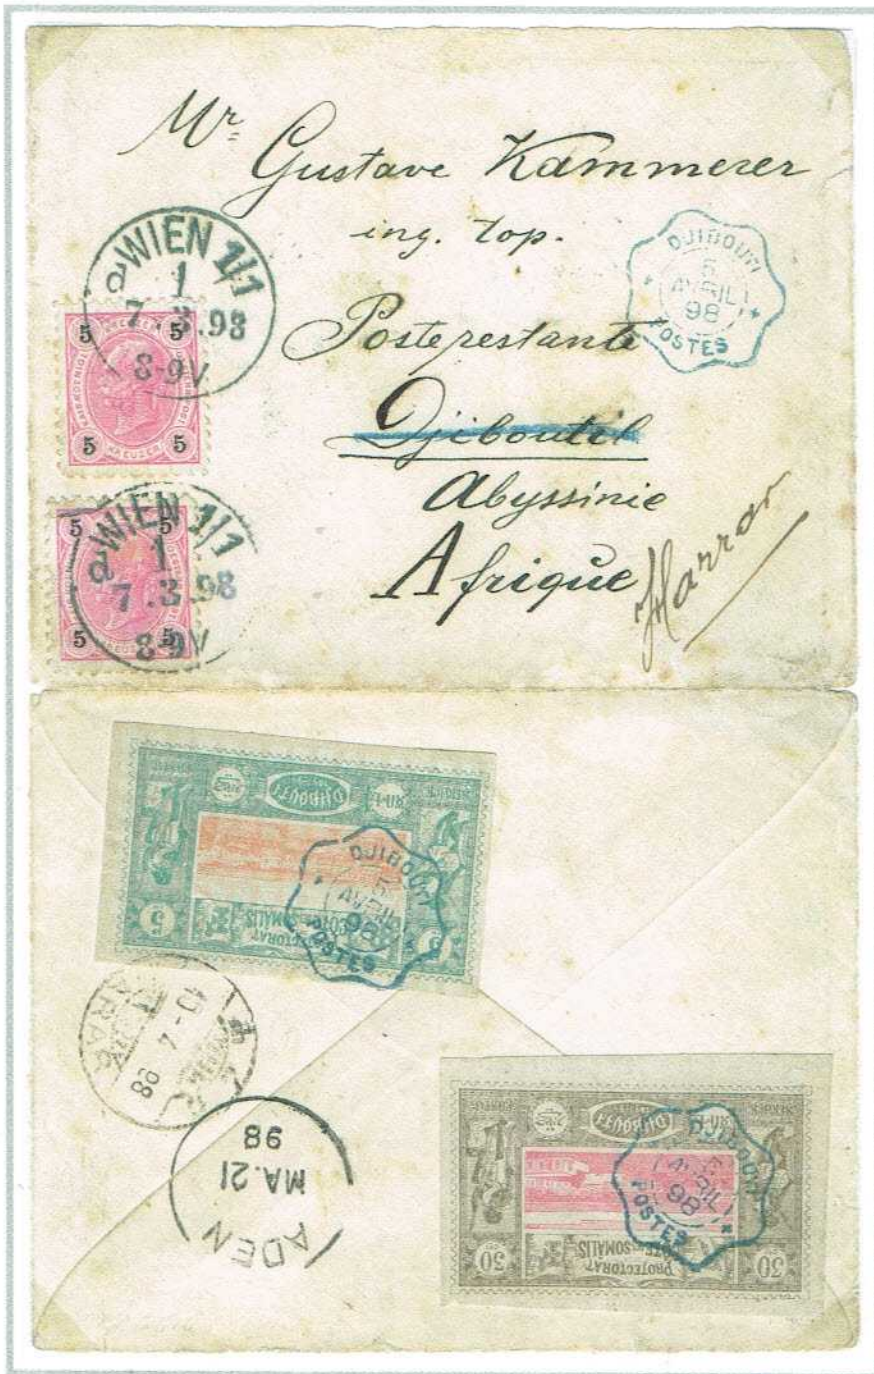 Mr
Gustave Kammerer
ing. top.
Posterestante
Djiboutil
Abyssinie
Afrique
Harrar
WIEN 1/1
1
7.3.98
8-9V
5 5
5 5
KREUZER
WIEN 1/1
1
7.3.98
8-9V
5 5
5 5
DJIBOUTI
5
AVRIL
98
POSTES
DJIBOUTI
5 5
PROTECTORAT
CÔTE DES SOMALIS
DJIBOUTI
5
AVRIL
98
POSTES
HARAR
10-4 98
ADEN
MA.21
98
DJIBOUTI
30 30
PROTECTORAT
CÔTE DES SOMALIS
DJIBOUTI
5
AVRIL
98
POSTES